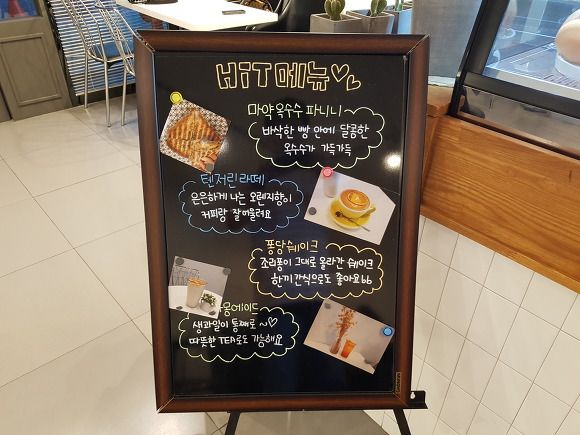 HiT메뉴
마약옥수수 파니니
바삭한 빵 안에 달콤한
옥수수가 가득가득
텐저린라떼
은은하게 나는 오렌지향이
커피랑 잘어울려요
퐁당쉐이크
조리퐁이 그대로 올라간 쉐이크
한끼 간식으로도 좋아요 bb
몽에이드
생과일이 통째로~
따뜻한 TEA로도 가능해요